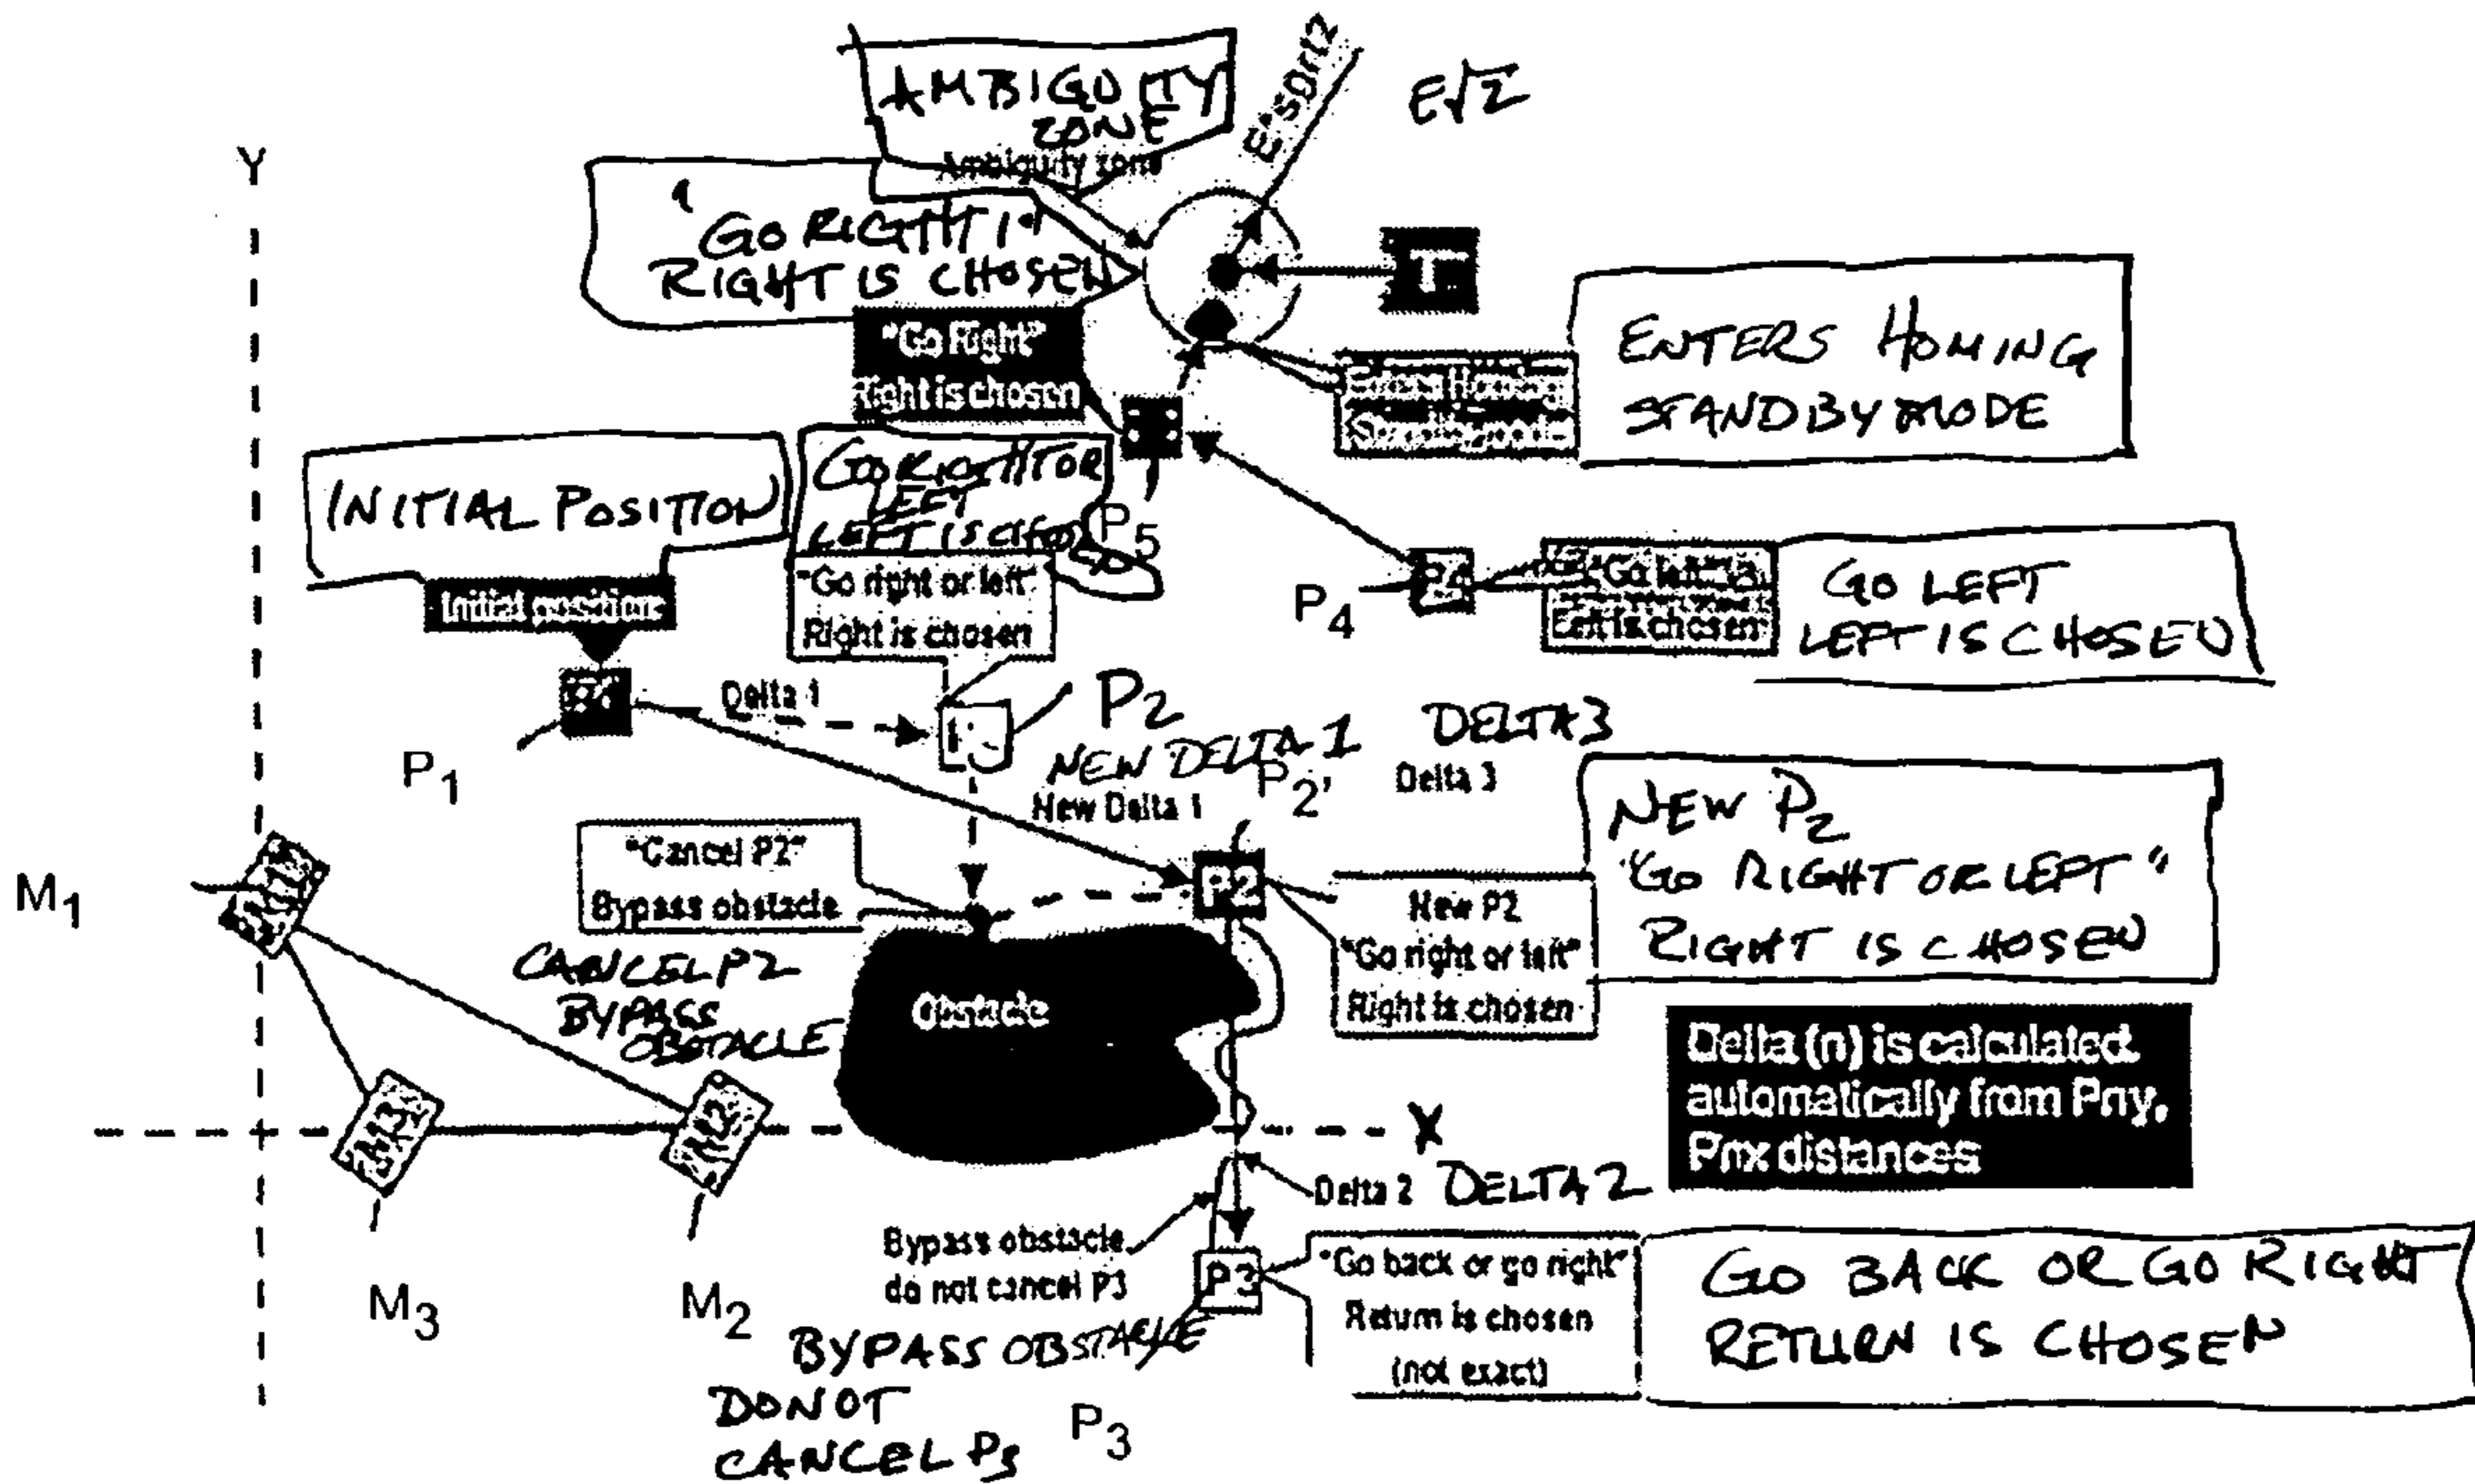 AMBIGUITY
ZONE
Ambiguity zone
E*sqrt2
E√2
Y
"GO RIGHT"
RIGHT IS CHOSEN
T
"Go Right"
Right is chosen
Enters Homing
Standby mode
ENTERS HOMING
STANDBY MODE
INITIAL POSITION
GO RIGHT OR
LEFT
LEFT IS CHOSEN
P5
Initial position
"Go right or left"
Right is chosen
P4
P4
"Go left"
Left is chosen
GO LEFT
LEFT IS CHOSEN
Delta 1
P1
P2
NEW DELTA 1
New Delta 1
P2'
DELTA 3
Delta 3
"Cancel P2"
Bypass obstacle
CANCEL P2
BYPASS
OBSTACLE
Obstacle
P2
New P2
"Go right or left"
Right is chosen
NEW P2
"GO RIGHT OR LEFT"
RIGHT IS CHOSEN
M1
M3
M2
X
Delta (n) is calculated
automatically from Pny,
Pnx distances
Delta 2
DELTA 2
Bypass obstacle
do not cancel P3
P3
"Go back or go right"
Return is chosen
(not exact)
GO BACK OR GO RIGHT
RETURN IS CHOSEN
M3
M2
BYPASS OBSTACLE
DO NOT
CANCEL P3
P3